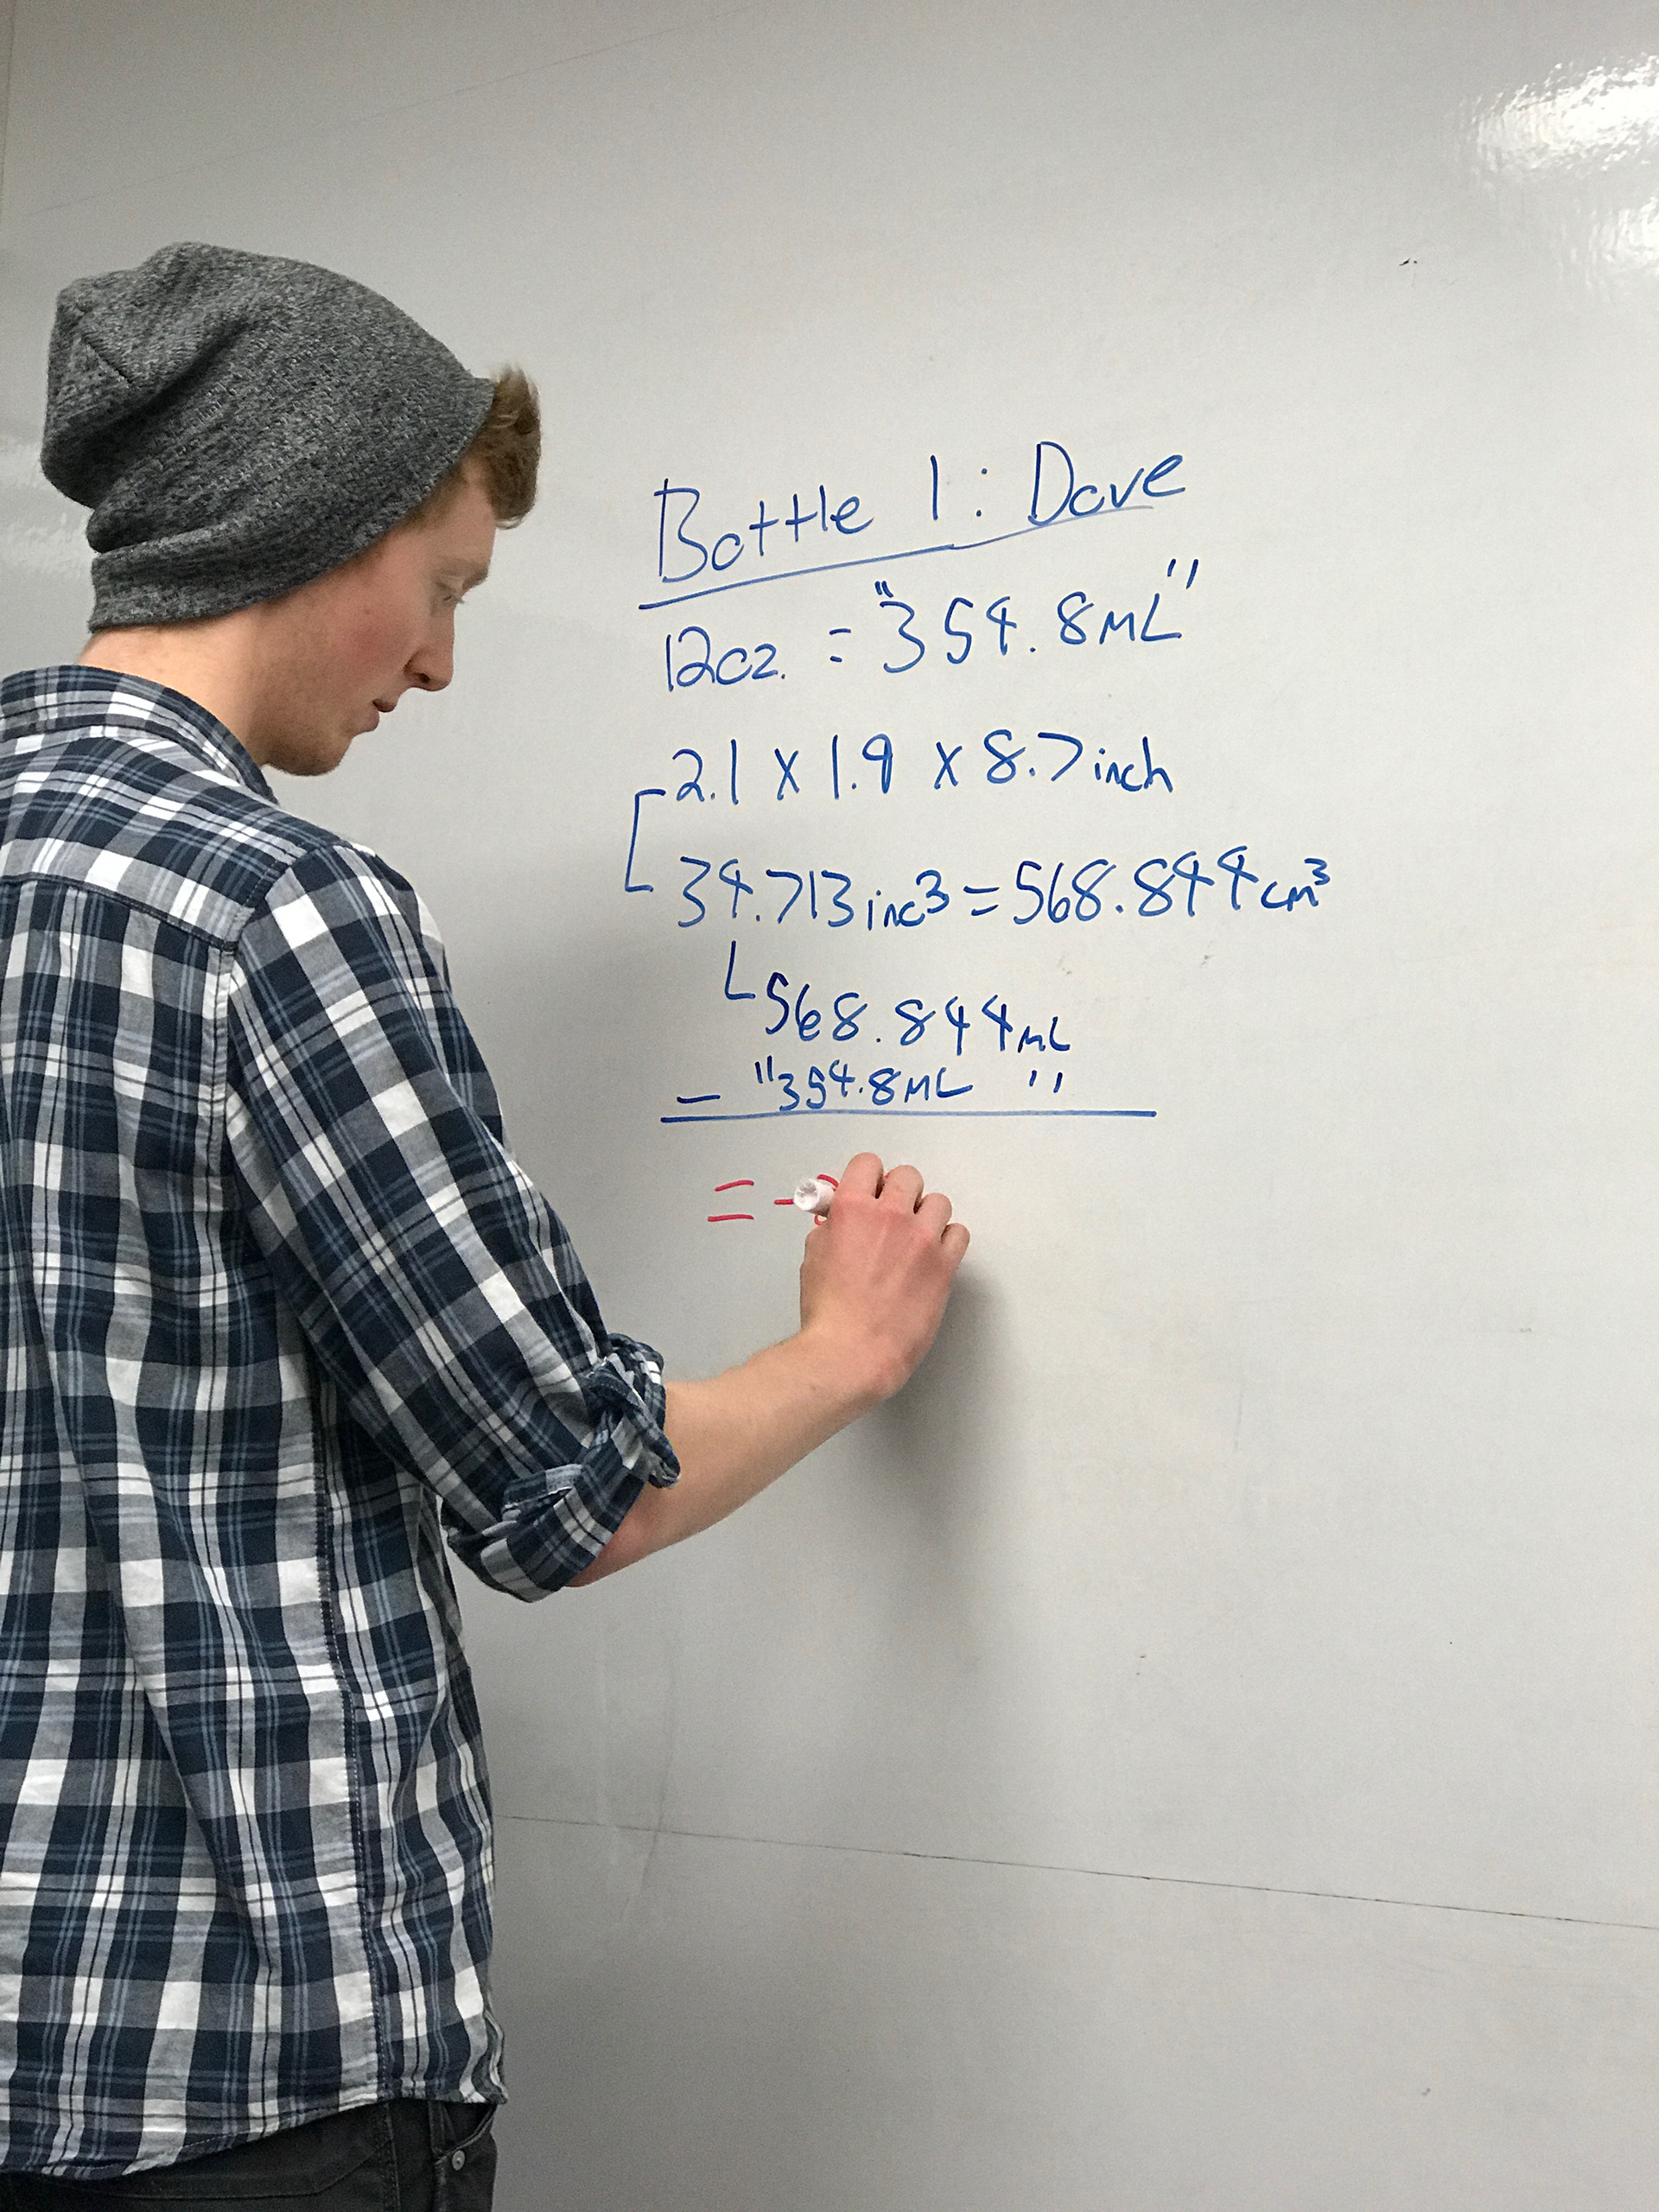 Bottle 1: Dove
12oz. = "354.8mL"
2.1 x 1.9 x 8.7 inch
34.713 inc³ = 568.844 cm³
568.844 mL
- "354.8mL "
= -